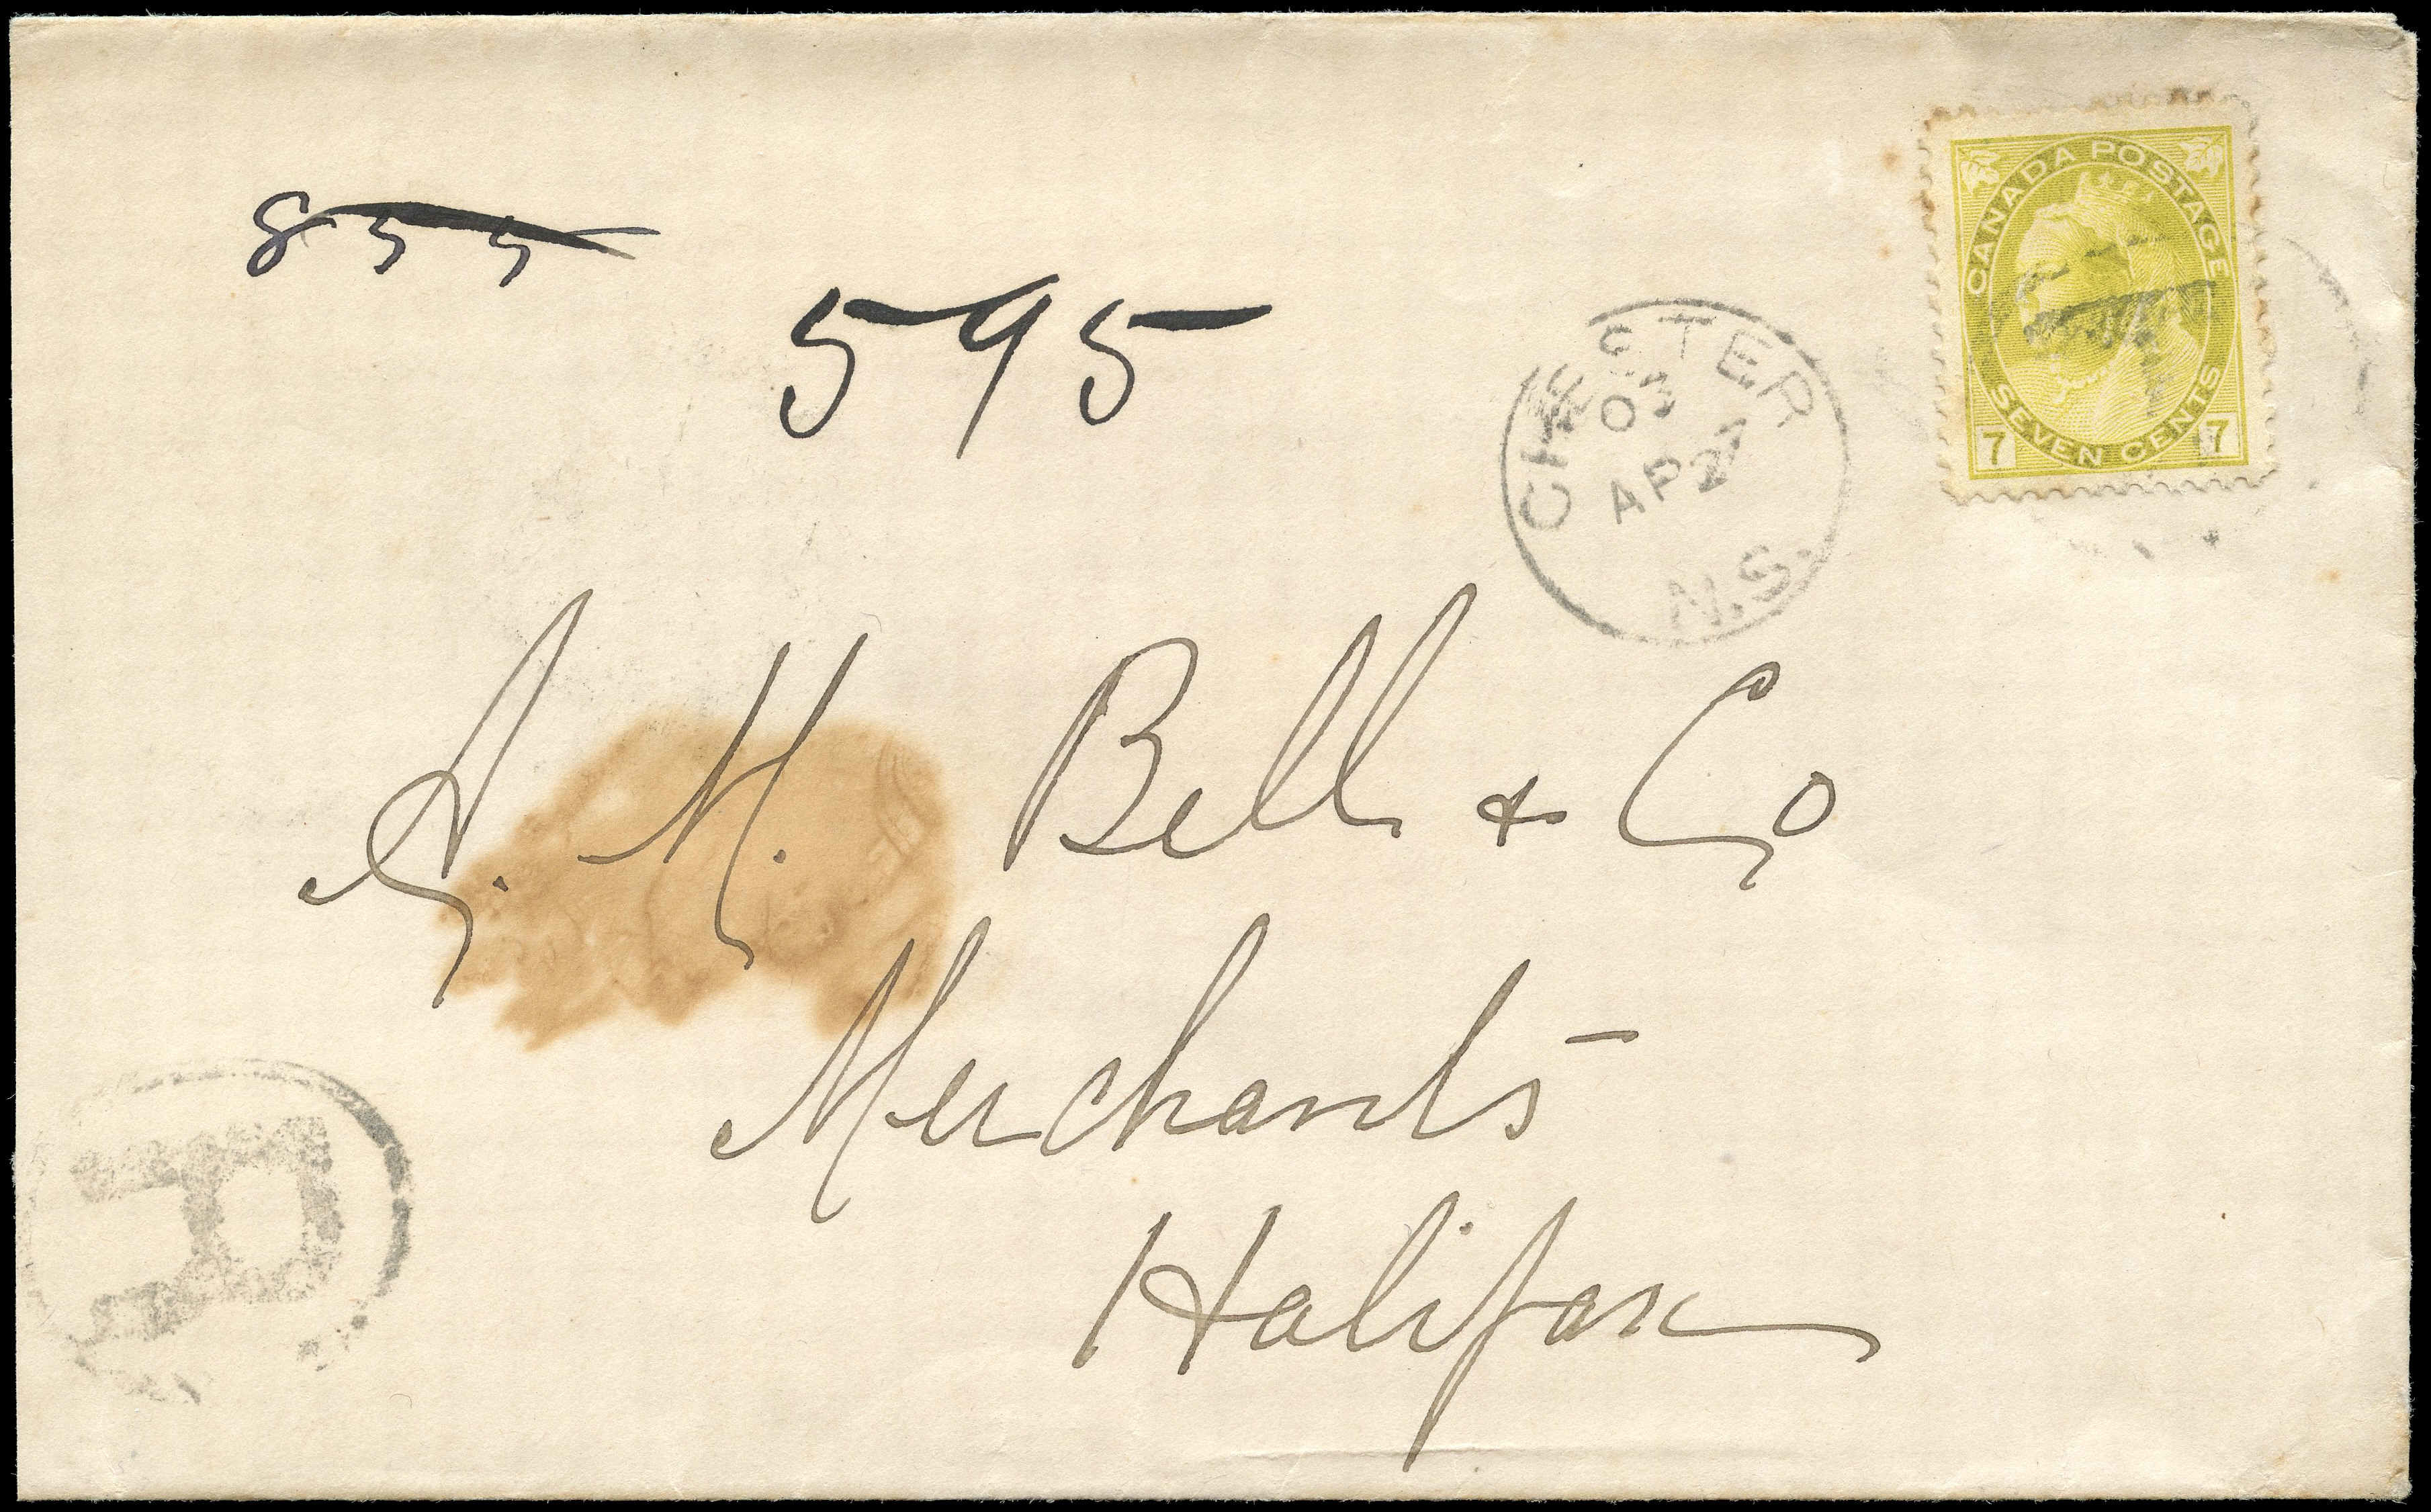 CANADA POSTAGE
SEVEN CENTS
7 7
855
595
CHESTER
03
AP 27
N.S.
A. M. Bell & Co
Merchants
Halifax
R